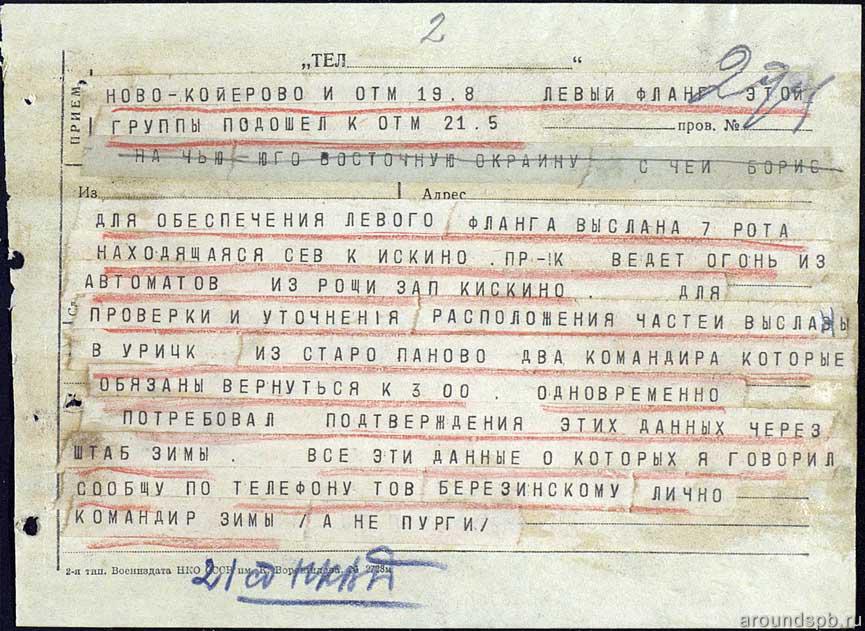 2
„ТЕЛ “
ПРИЕМ
НОВО-КОЙЕРОВО И ОТМ 19.8 ЛЕВЫЙ ФЛАНГ ЭТОЙ
ГРУППЫ ПОДОШЕЛ К ОТМ 21.5 пров. №
НА ЧЬЮ-ЮГО ВОСТОЧНУЮ ОКРАИНУ С ЧЕИ БОРИС
Из Адрес
ДЛЯ ОБЕСПЕЧЕНИЯ ЛЕВОГО ФЛАНГА ВЫСЛАНА 7 РОТА
НАХОДЯЩАЯСЯ СЕВ К ИСКИНО .ПР-!К ВЕДЕТ ОГОНЬ ИЗ
АВТОМАТОВ ИЗ РОЩИ ЗАП КИСКИНО . ДЛЯ
ПРОВЕРКИ И УТОЧНЕНІЯ РАСПОЛОЖЕНИЯ ЧАСТЕИ ВЫСЛАНЫ
В УРИЦК ИЗ СТАРО ПАНОВО ДВА КОМАНДИРА КОТОРЫЕ
ОБЯЗАНЫ ВЕРНУТЬСЯ К 3 00 . ОДНОВРЕМЕННО
ПОТРЕБОВАЛ ПОДТВЕРЖДЕНИЯ ЭТИХ ДАННЫХ ЧЕРЕЗ
ШТАБ ЗИМЫ . ВСЕ ЭТИ ДАННЫЕ О КОТОРЫХ Я ГОВОРИЛ
СООБЩУ ПО ТЕЛЕФОНУ ТОВ БЕРЕЗИНСКОМУ ЛИЧНО
КОМАНДИР ЗИМЫ /А НЕ ПУРГИ/
2-я тип. Воениздата НКО СССР им. К. Ворошилова. 2728м
21 сд НКВД
aroundspb.ru